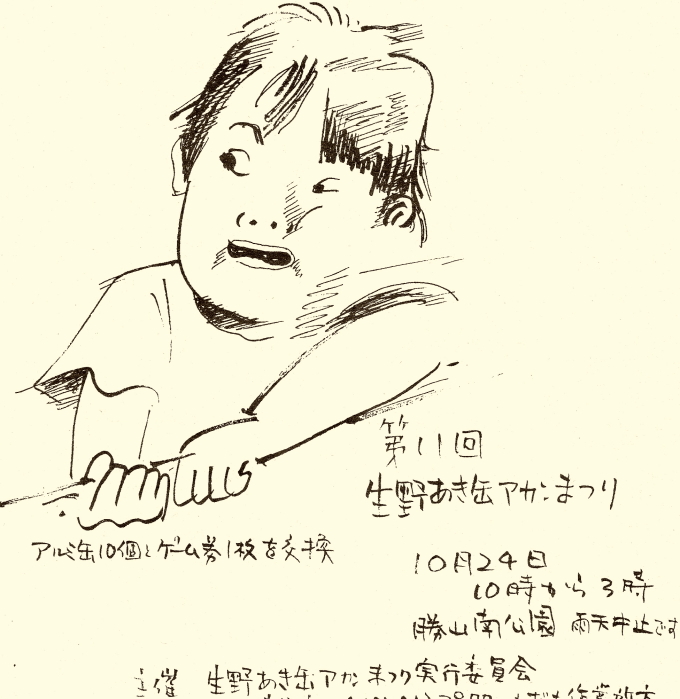 第11回
生野あき缶アカンまつり
アルミ缶10個とゲーム券1枚を交換
10月24日
10時から3時
勝山南公園 雨天中止です
主催 生野あき缶アカンまつり実行委員会